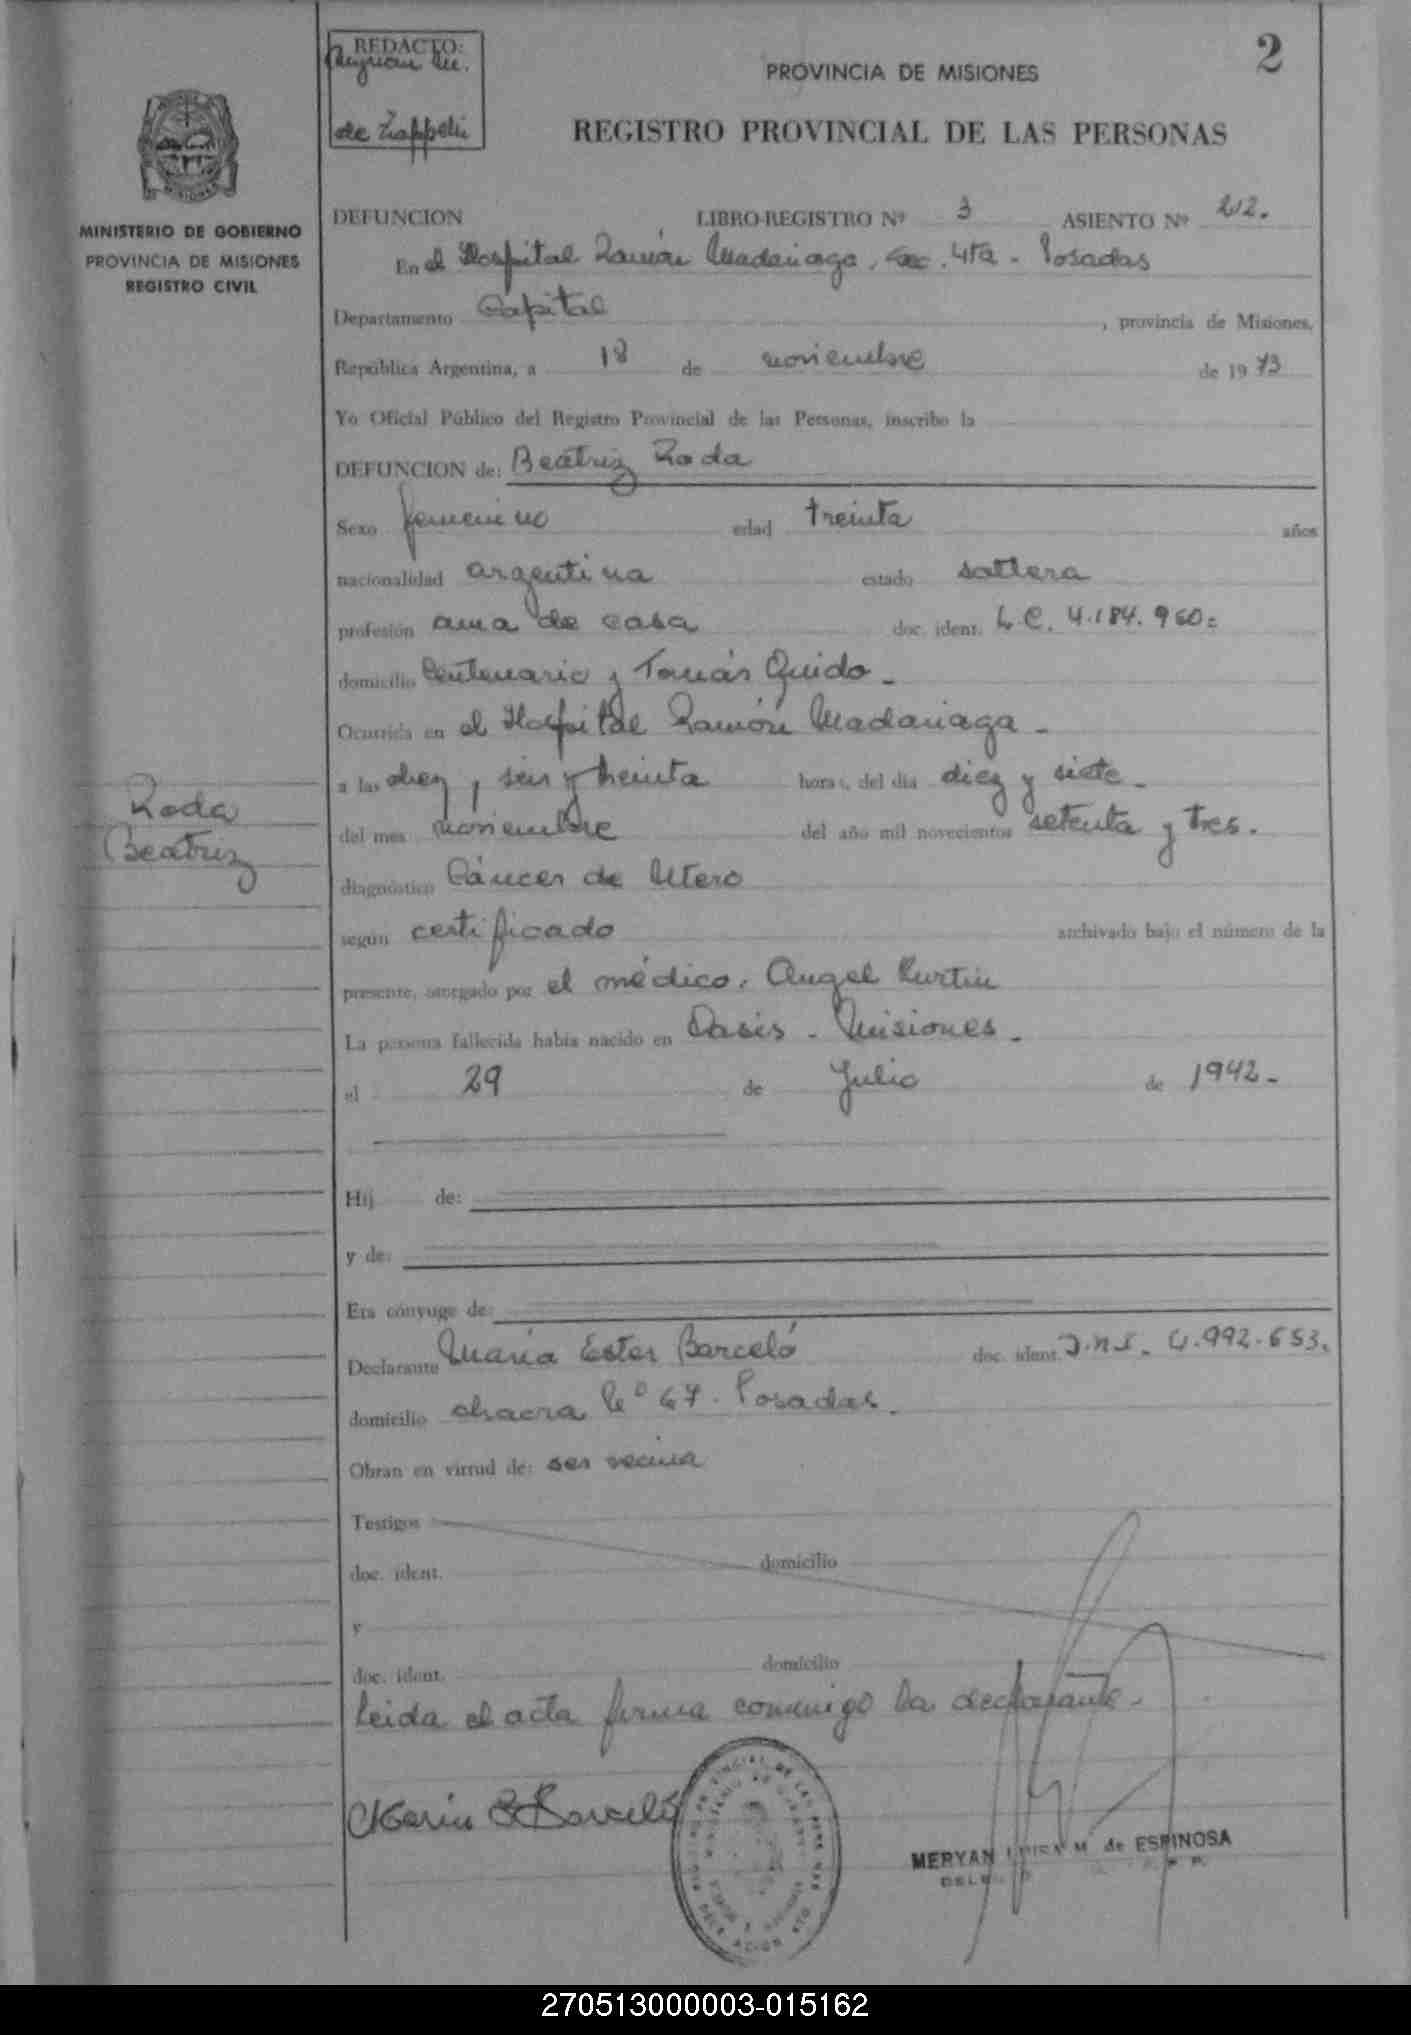 REDACTO:
de Zappelli
2
PROVINCIA DE MISIONES
REGISTRO PROVINCIAL DE LAS PERSONAS
MINISTERIO DE GOBIERNO
PROVINCIA DE MISIONES
REGISTRO CIVIL
DEFUNCION LIBRO-REGISTRO Nº 3 ASIENTO Nº 212.
En el Hospital Ramón Madariaga, Sec. 4ta - Posadas
Departamento Capital, provincia de Misiones,
República Argentina, a 18 de noviembre de 1973
Yo Oficial Público del Registro Provincial de las Personas, inscribo la
DEFUNCION de: Beatriz Roda
Sexo femenino edad treinta años
nacionalidad argentina estado soltera
profesión ama de casa doc. ident. L.C. 4.184.960=
domicilio Centenario y Tomás Guido -
Ocurrida en el Hospital Ramón Madariaga -
a las diez y seis y treinta horas, del día diez y siete -
del mes noviembre del año mil novecientos setenta y tres.
Roda
Beatriz
diagnóstico Cáncer de Utero
según certificado archivado bajo el número de la
presente, otorgado por el médico, Angel Kurtin
La persona fallecida había nacido en Oasis - Misiones -
el 29 de Julio de 1942 -
Hij de:
y de:
Era cónyuge de:
Declarante María Ester Barceló doc. ident. 4.992.653.
domicilio chacra Nº 67. Posadas -
Obran en virtud de: ser vecina
Testigos
doc. ident. domicilio
y
doc. ident. domicilio
Leida el acta firma conmigo la declarante -
MERYAN LUISA M. de ESPINOSA
270513000003-015162